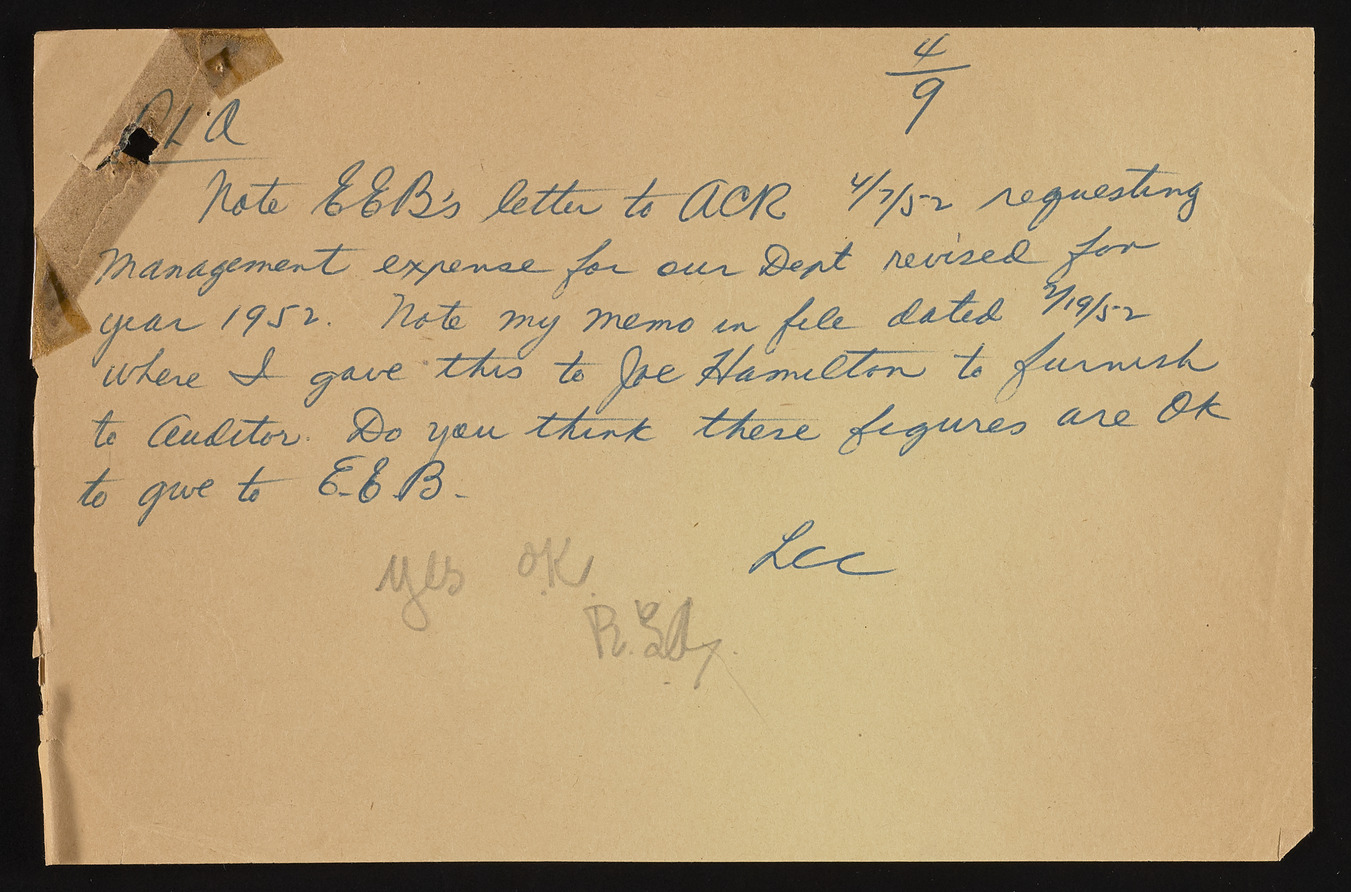 4/9
RLA
Note EEB's letter to ACR 4/7/52 requesting
management expense for our Dept revised for
year 1952. Note my memo in file dated 2/19/52
where I gave this to Joe Hamilton to furnish
to Auditor. Do you think these figures are OK
to give to E.E.B.
Lcc
yes OK.